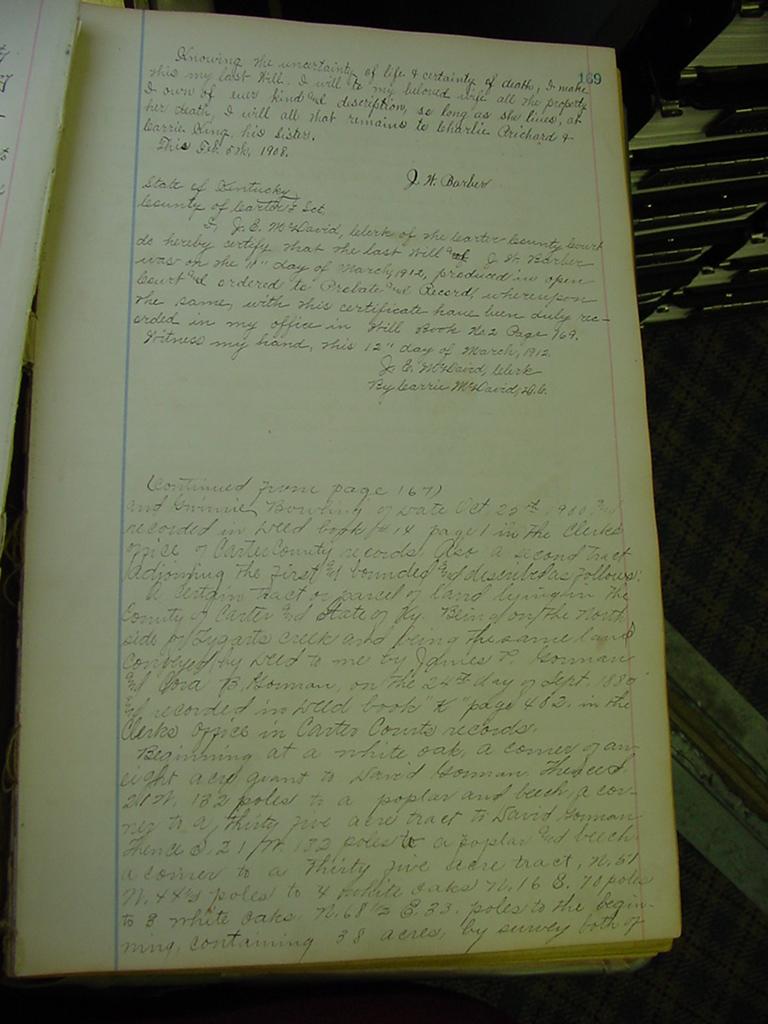 169
Knowing the uncertainty of life & certainty of death, I make
this my last Will. I will to my beloved wife all the property
I own of ever kind and description, so long as she lives, at
her death, I will all that remains to Charlie Prichard &
Carrie King, his sister.
This Feb. 5th, 1908.
J. W. Barber
State of Kentucky
County of Carter Sct
I, J. E. McDavid, Clerk of the Carter County Court
do hereby certify that the last Will of J. W. Barber
was on the 11" day of March, 1912, produced in open
Court and ordered to Probate and Record, whereupon
the same, with this certificate have been duly rec-
orded in my office in Will Book No 2 Page 169.
Witness my hand, this 12" day of March, 1912.
J. E. McDavid, Clerk
By Carrie McDavid, D.C.
(Continued from page 167)
and Bowling of date Oct 25th, 1900 and
recorded in Deed book # 14 page 1 in the Clerks
office of Carter County records. Also a second tract
adjoining the first and bounded and described as follows:
A certain tract or parcel of land lying in the
County of Carter and State of Ky. Being on the North
side of Tygarts creek and being the same land
conveyed by deed to me by James P. Gorman
and Cora B. Gorman, on the 24th day of Sept. 188
and recorded in Deed book "K" page 402. in the
Clerks office in Carter Courts records.
Beginning at a white oak, a corner of an
eight acre grant to David Gorman Thence S.
21 W. 132 poles to a poplar and beech, a cor-
ner to a thirty five acre tract to David Gorman
Thence S. 21 W. 132 poles to a poplar and beech
a corner to a thirty five acre tract, N. 51
W. 44 poles to 4 white oaks N. 16 E. 70 poles
to 3 white oaks. N. 68 1/2 E. 33. poles to the begin-
ning, containing 38 acres, by survey both of